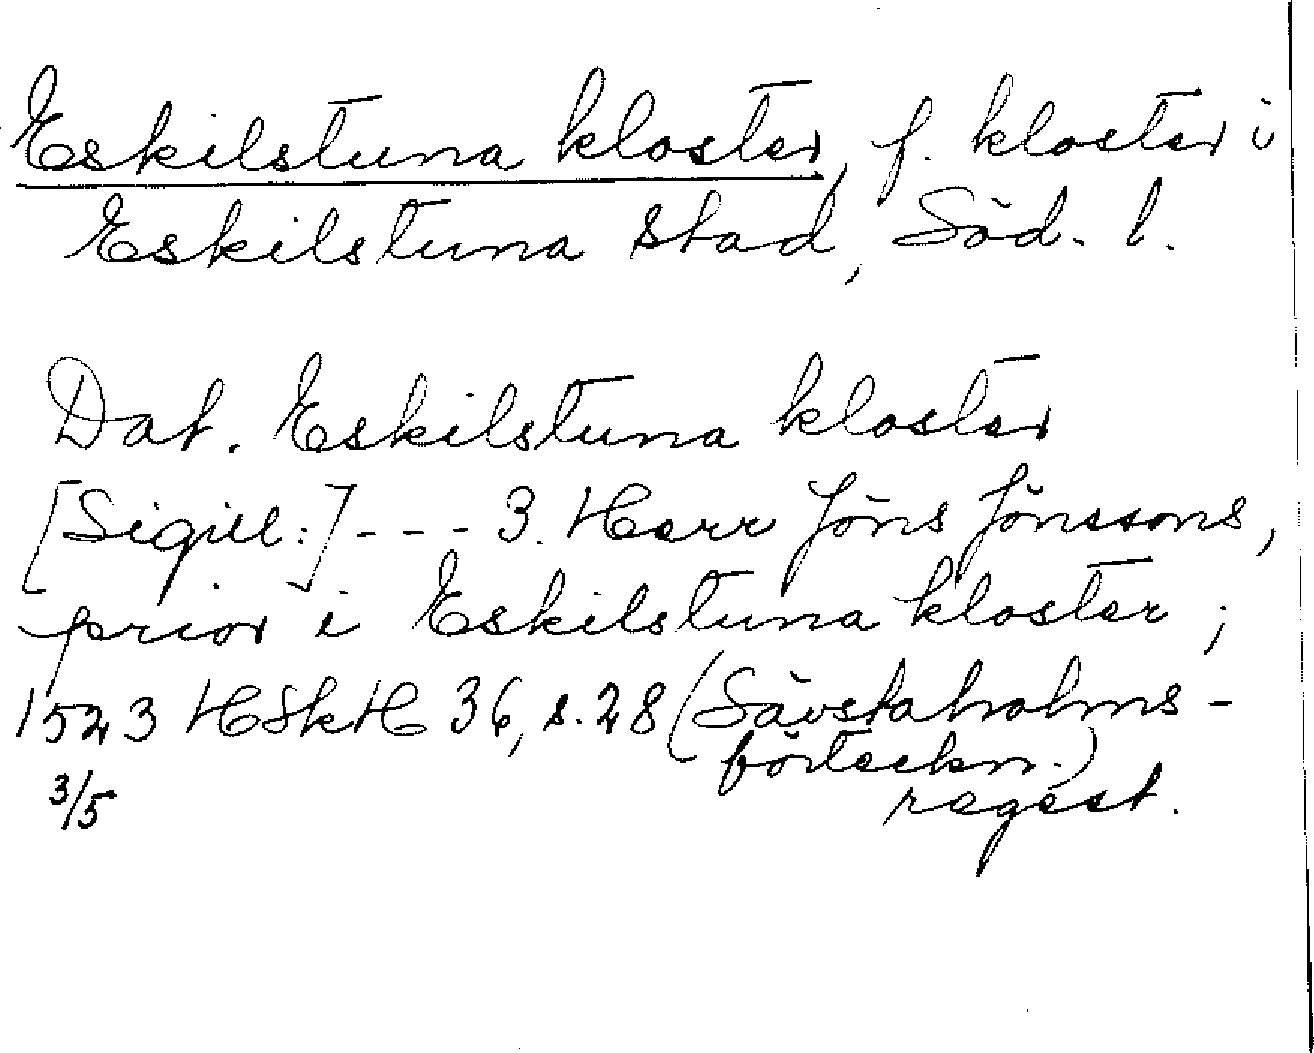 Eskilstuna kloster, f. kloster i
Eskilstuna stad, Söd. l.
Dat. Eskilstuna kloster
[Sigill:] - - - 3. Herr Jöns Jönssons,
prior i Eskilstuna kloster;
1523 HSkH 36, s. 28 (Sävstaholms-
förteckn.)
regest.
3/5